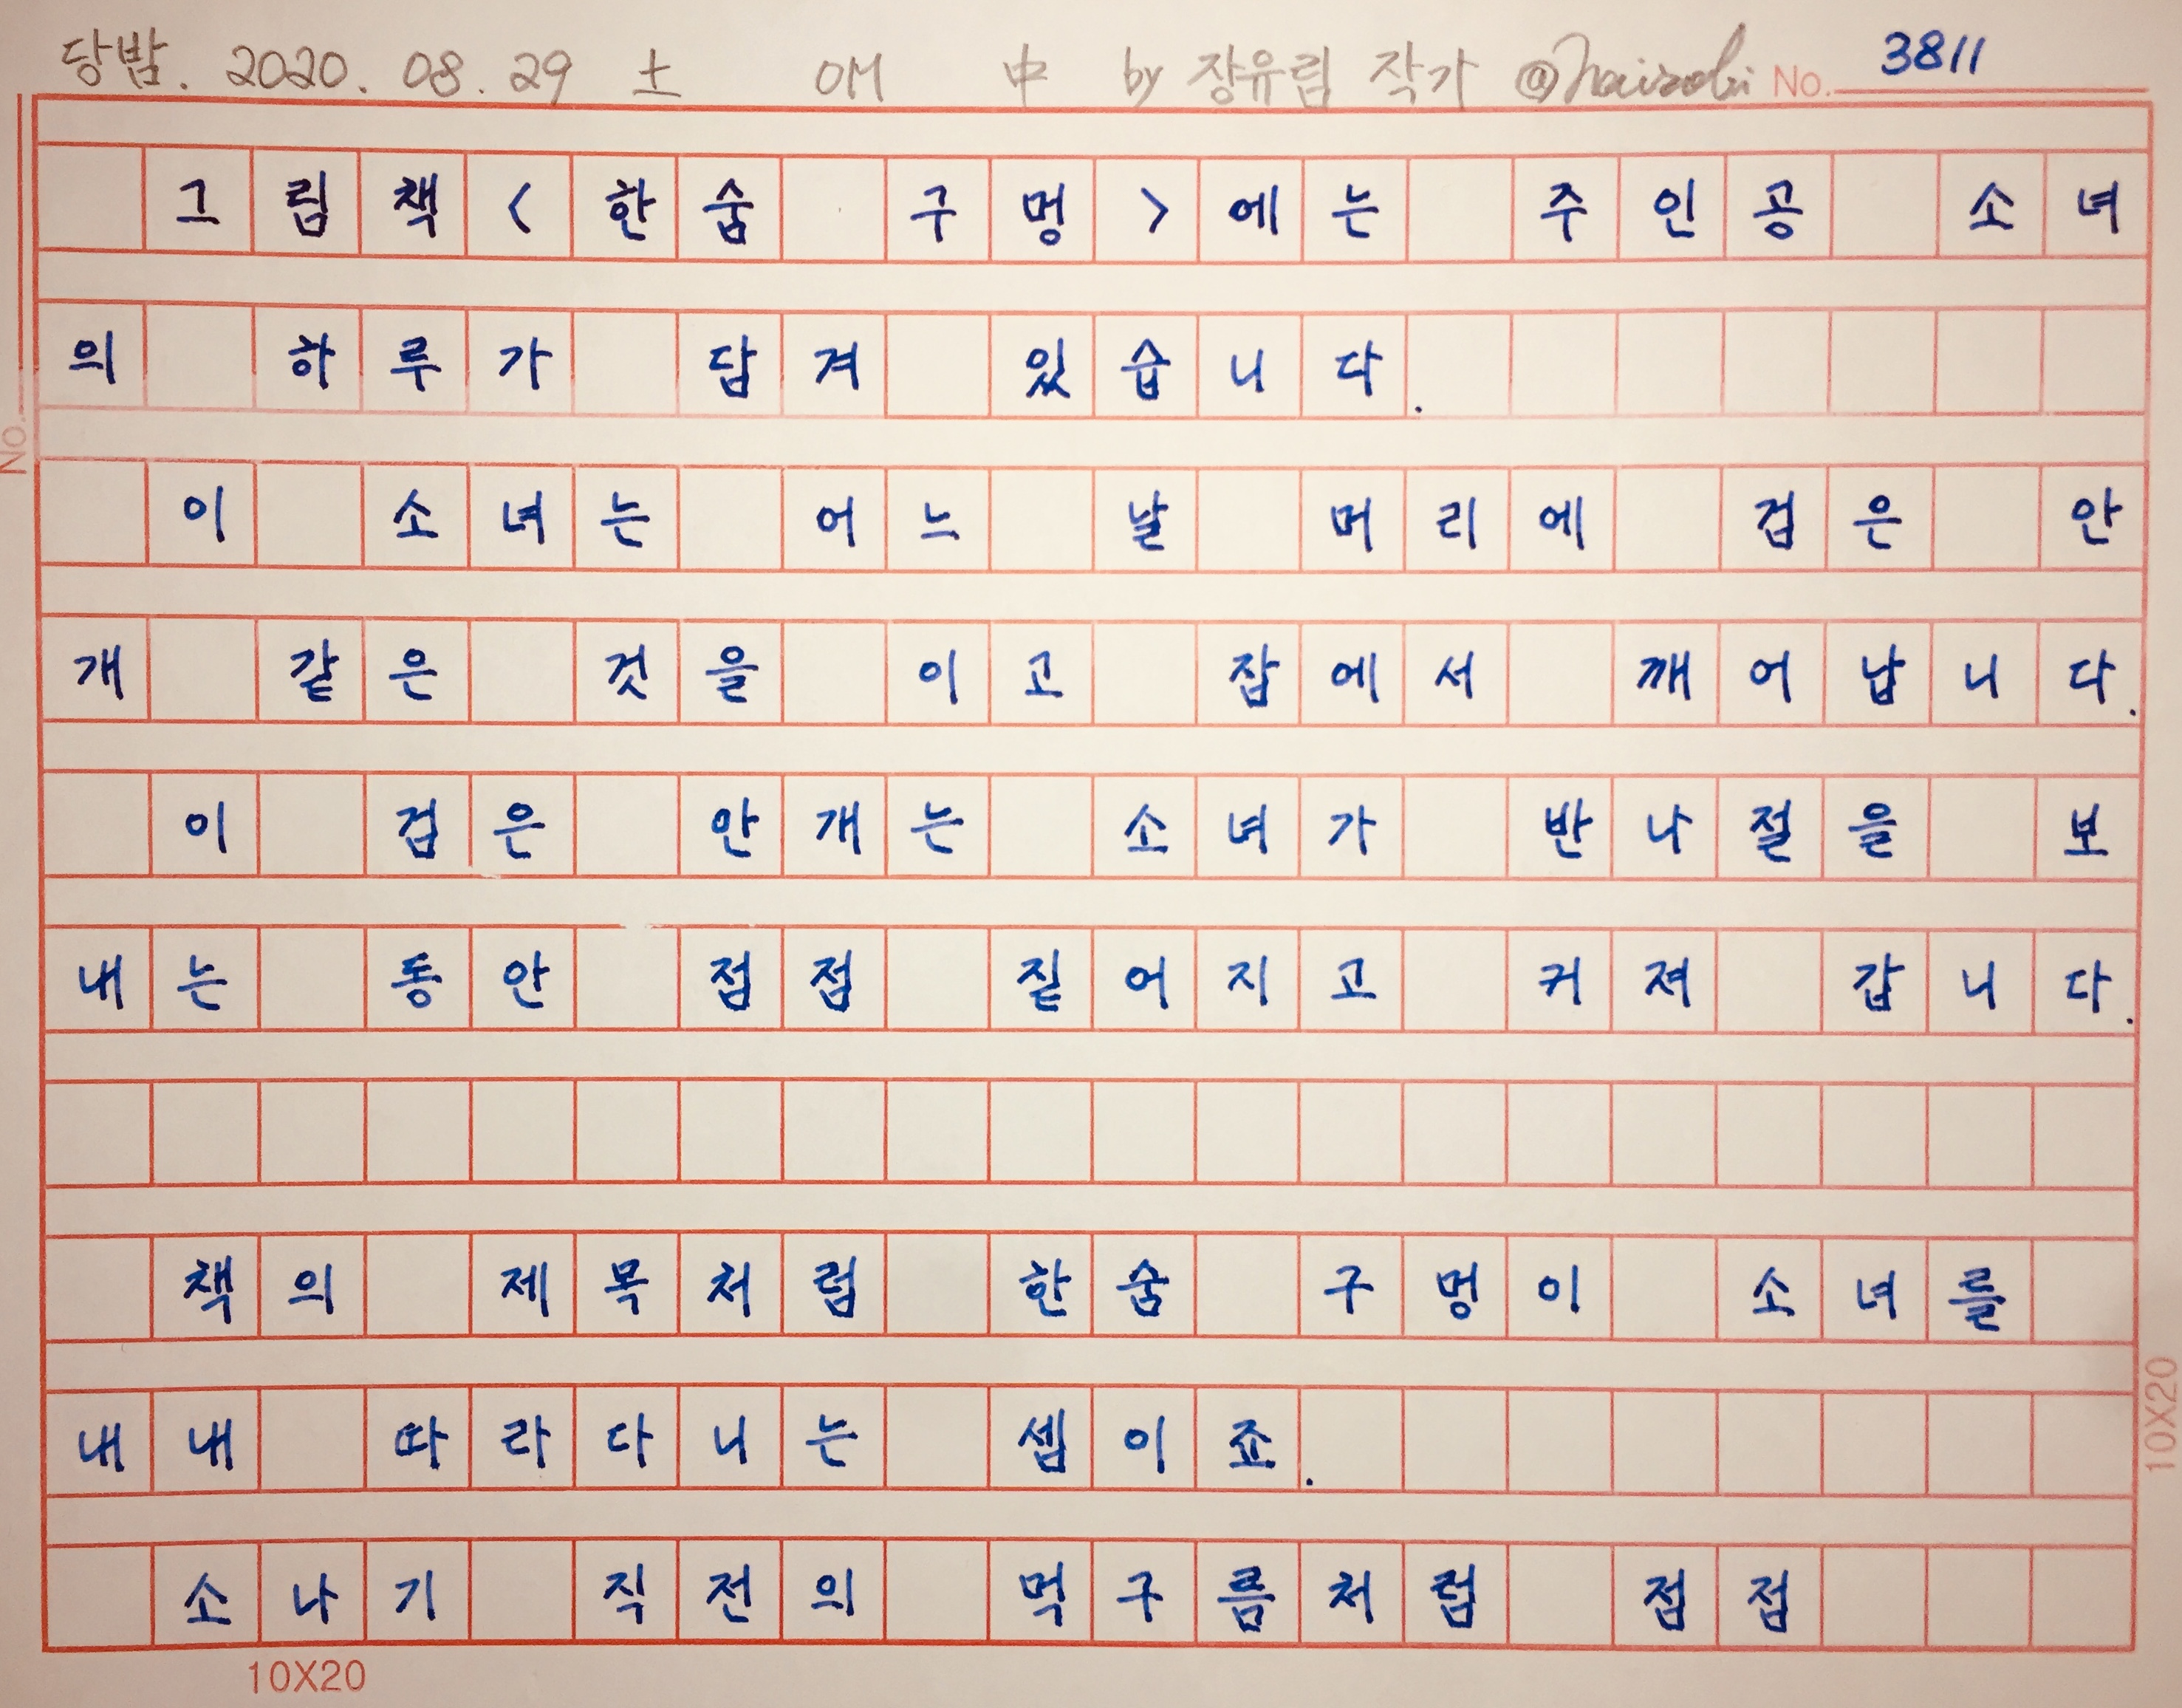 당밤. 2020. 08. 29 土 OM 中 by 장유림 작가 @nairobi No. 3811
그림책<한숨 구멍>에는 주인공 소녀
의 하루가 담겨 있습니다.
No.
이 소녀는 어느 날 머리에 검은 안
개 같은 것을 이고 잠에서 깨어납니다.
이 검은 안개는 소녀가 반나절을 보
내는 동안 점점 짙어지고 커져 갑니다.
책의 제목처럼 한숨 구멍이 소녀를
내내 따라다니는 셈이죠.
10X20
소나기 직전의 먹구름처럼 점점
10X20